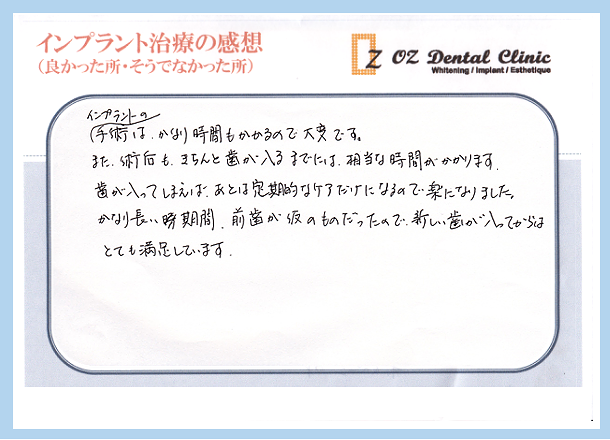 インプラント治療の感想
(良かった所・そうでなかった所)
OZ OZ Dental Clinic
Whitening / Implant / Esthetique
インプラントの
手術は、かなり時間もかかるので大変です。
また、術后も、きちんと歯が入るまでには、相当な時間がかかります。
歯が入ってしまえば、あとは定期的なケアだけになるので楽になりました。
かなり長い時期間、前歯が仮のものだったので、新しい歯が入ってからは
とても満足しています。